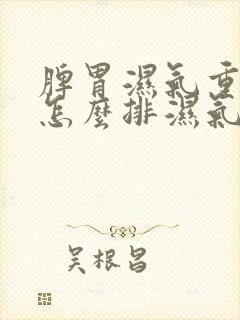 脾胃濕氣重
怎麼排濕氣
吴根昌